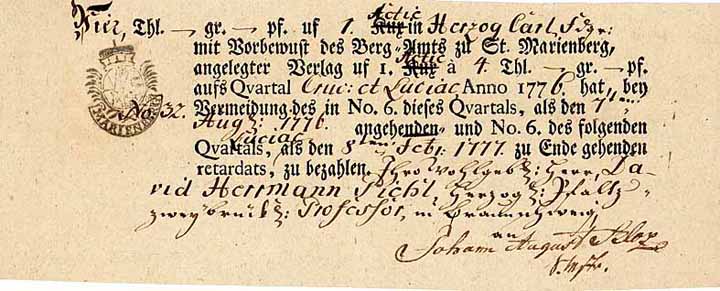 Vier, Thl. — gr. — pf. uf 1. Actie Kux in Herzog Carl Fdgr:
mit Vorbewust des Berg-Amts zu St. Marienberg,
angelegter Verlag uf 1. Actie Kux à 4. Thl. — gr. — pf.
aufs Qvartal Cruc: et Luciac Anno 1776. hat, bey
No. 32. Vermeidung des in No. 6. dieses Qvartals, als den 7ten
Aug: 1776. angehenden und No. 6. des folgenden
Qvartals, Luciac, als den 8ten Febr: 1777. zu Ende gehenden
retardats, zu bezahlen. Ihro Wohlgeb: Herr, Da-
vid Herrmann Pichl, Herzog: Pfaltz-
zweybrück: Professor, in Braunschweig,
an
Johann August
MARIENB